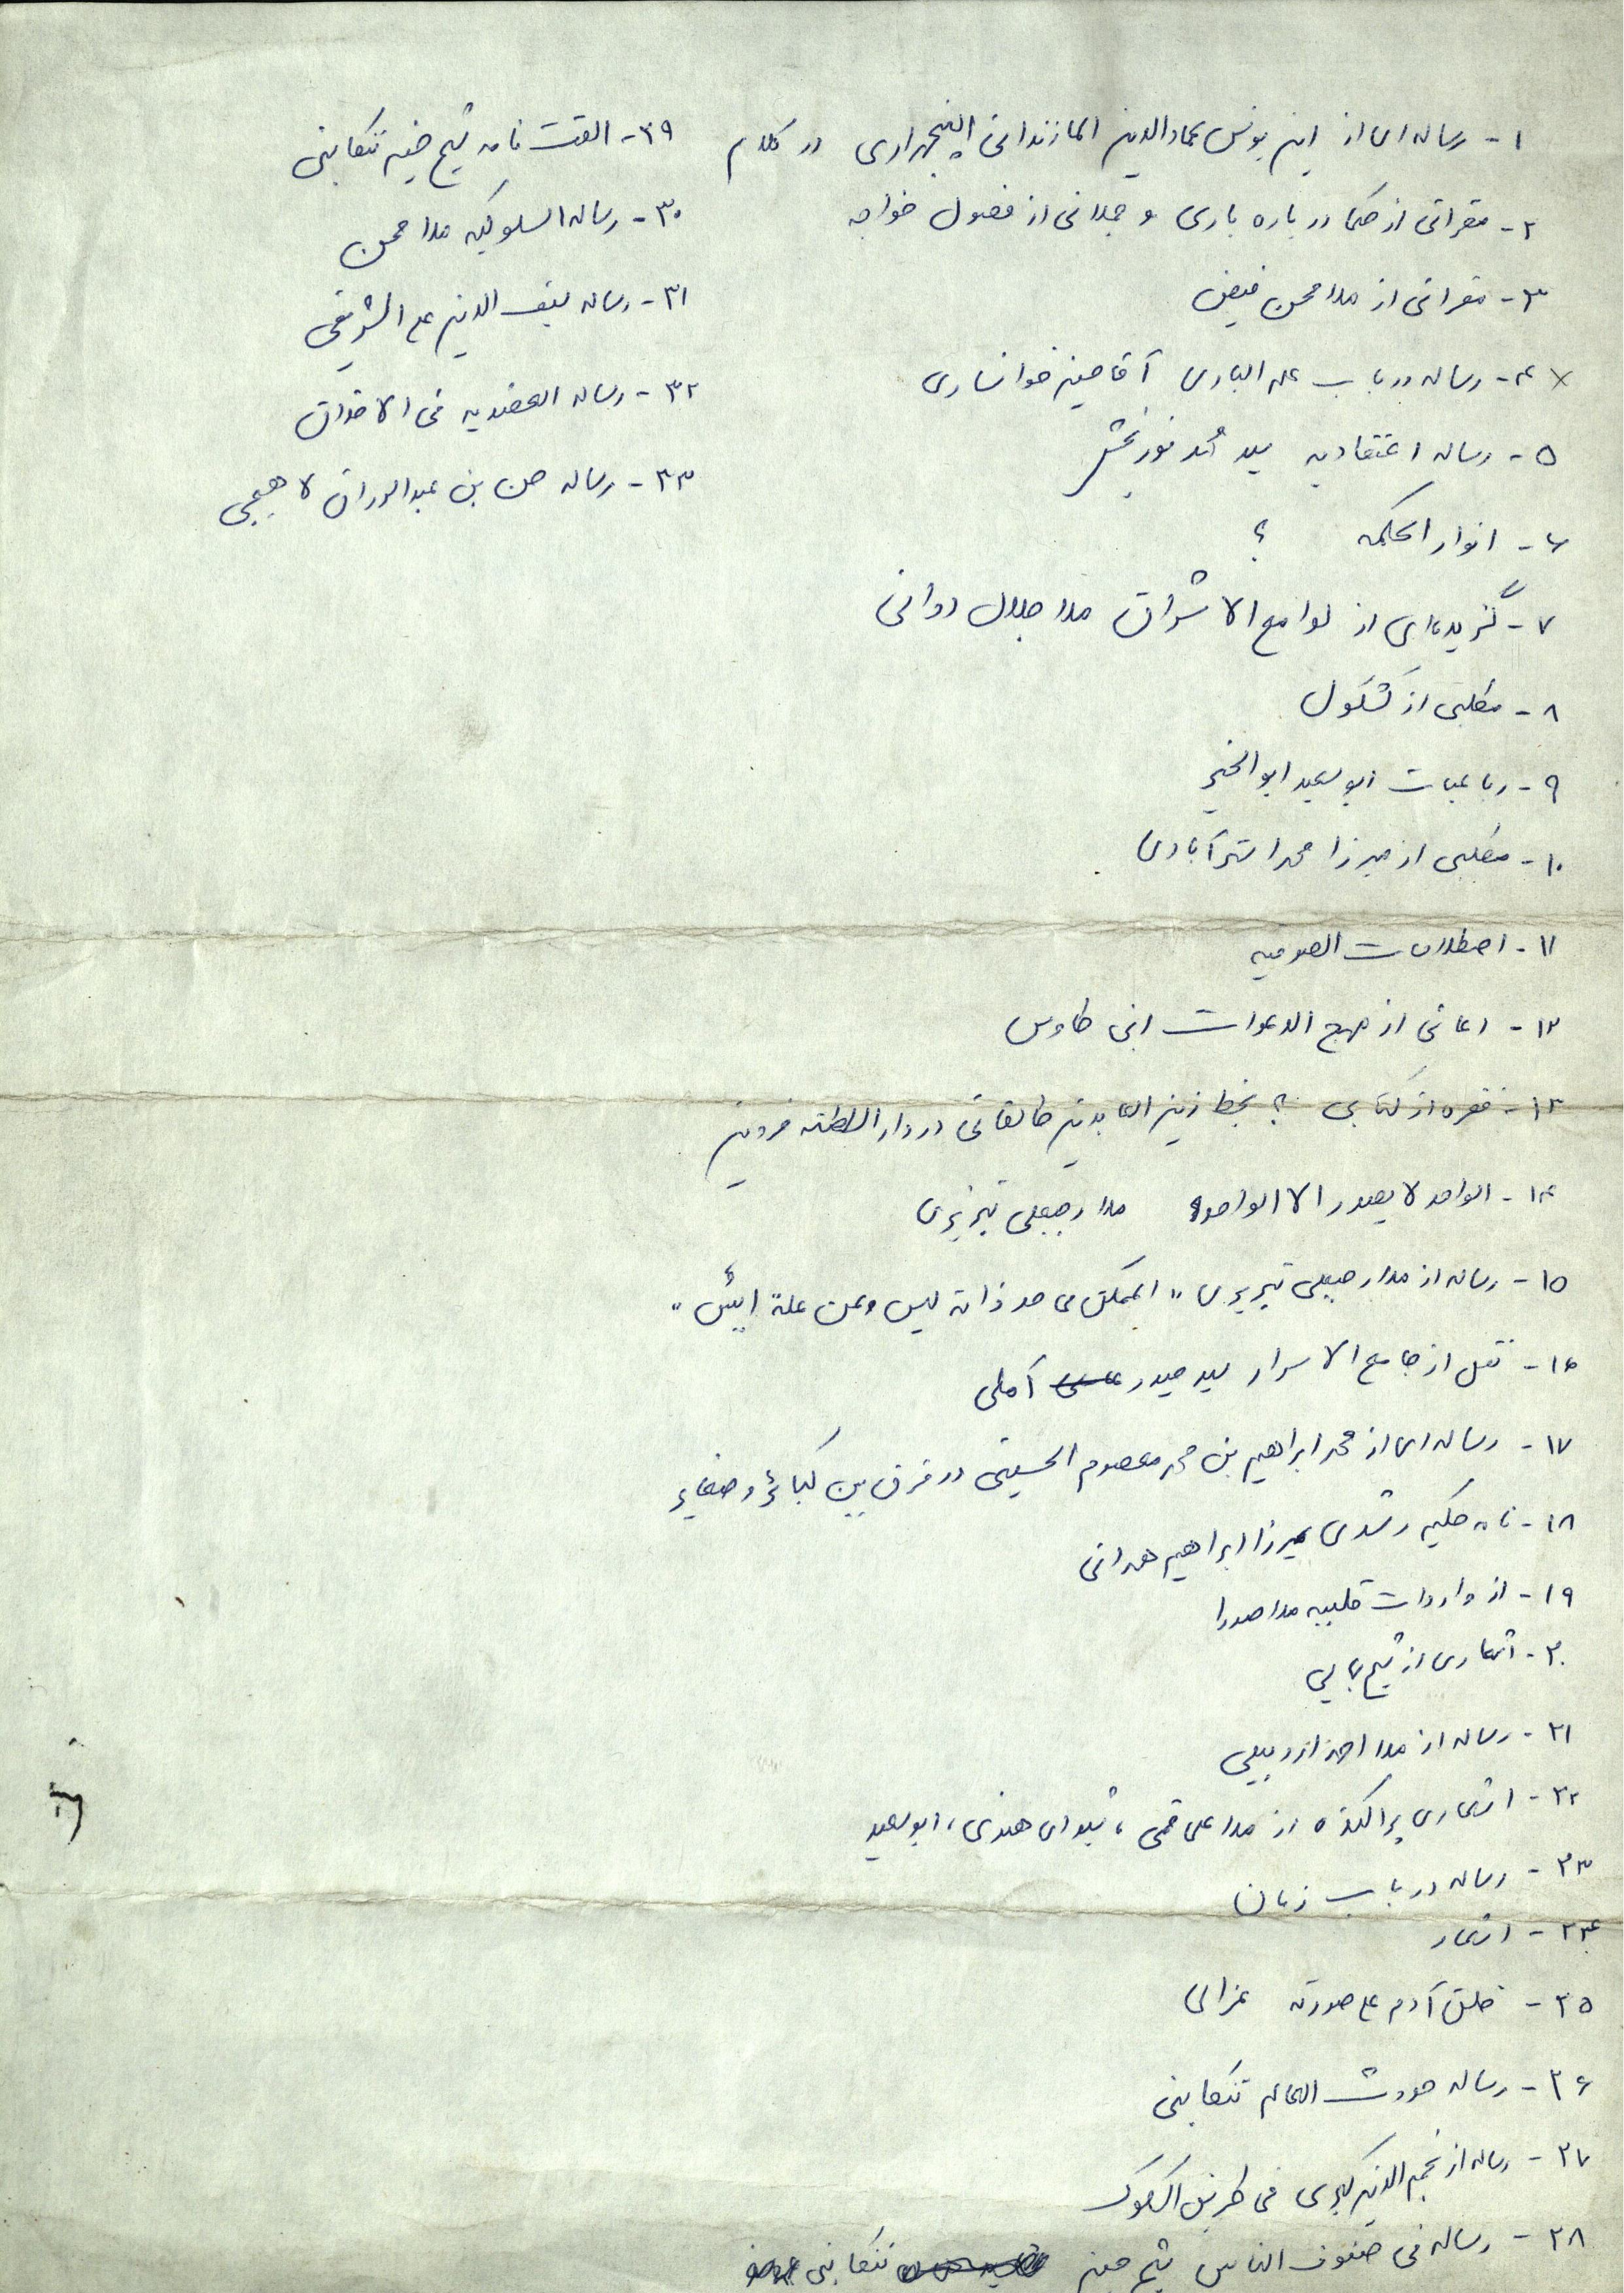 ۱- رساله‌ای از ابن یونس عمادالدین المازندرانی الپنجهزاری در کلام
۲- مقراتی از حکما درباره باری و جملاتی از فصول خواجه
۳- مقراتی از ملا محسن فیض
× ۴- رساله در باب علم الباری آقا حسین خوانساری
۵- رساله اعتقادیه سید محمد نوربخش
۶- انوار الحکمه ؟
۷- گزیده‌ای از لوامع الاشراق ملا جلال دوانی
۸- مطلبی از کشکول
۹- رباعیات ابو سعید ابوالخیر
۱۰- مطلبی از میرزا محمد استرآبادی
۱۱- اصطلاحات الصوفیه
۱۲- دعائی از مهج الدعوات ابن طاوس
۱۳- فقره از کتابی ؟ بخط زین العابدین طالقانی در دار السلطنه قزوین
۱۴- الواحد لا یصدر الا الواحد ملا رجبعلی تبریزی
۱۵- رساله از ملا رجبعلی تبریزی "الممکن فی حد ذاته لیس و عن علة ایس"
۱۶- نقل از جامع الاسرار سید حیدر آملی
۱۷- رساله‌ای از محمد ابراهیم بن محمد معصوم الحسینی در فرق بین کبائر و صغایر
۱۸- نامه حکیم رشدی بمیرزا ابراهیم همدانی
۱۹- از واردات قلبیه ملا صدرا
۲۰- اشعاری از شیخ بهایی
۲۱- رساله از ملا احمد اردبیلی
۲۲- اشعاری پراکنده از ملا علی قمی، شیدای هندی، ابو سعید
۲۳- رساله در باب زمان
۲۴- اشعار
۲۵- خلق آدم علی صورته غزالی
۲۶- رساله حدوث العالم تنکابنی
۲۷- رساله از نجم الدین کبری فی طریق السلوک
۲۸- رساله فی صنوف الناس شیخ حسین تنکابنی
۲۹- الفت نامه شیخ حسین تنکابنی
۳۰- رساله السلوکیه ملا محسن
۳۱- رساله سیف الدین علی الشریفی
۳۲- رساله العضدیه فی الاخلاق
۳۳- رساله حسن بن عبدالرزاق لاهیجی